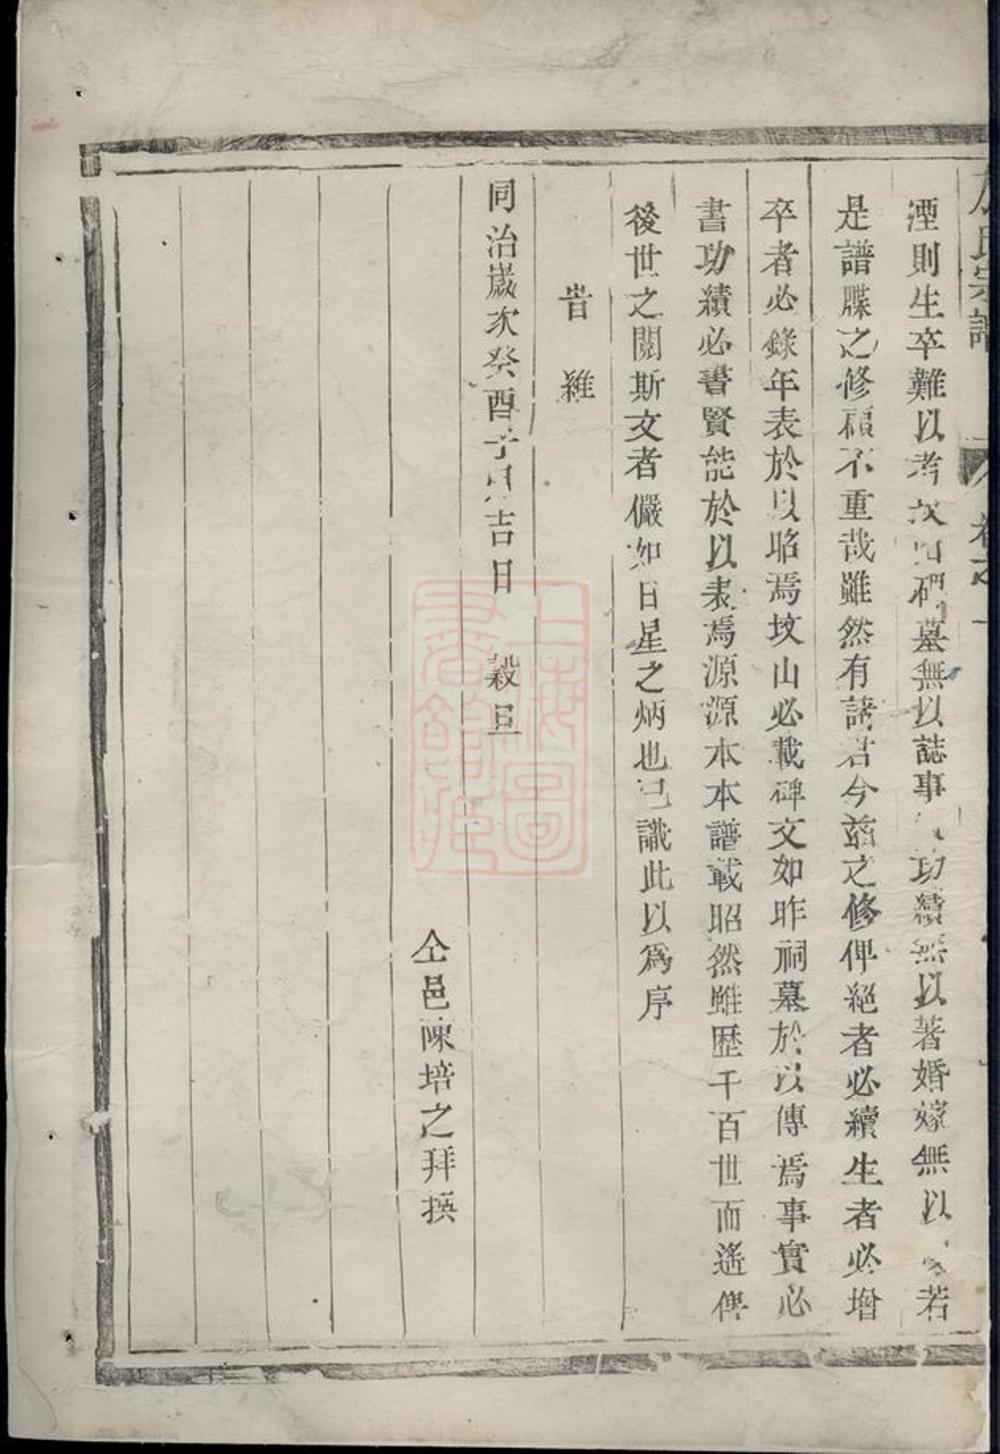 氏宗譜 卷之一
湮則生卒難以考次如碑墓無以誌事功績無以著婚嫁無以若
是譜牒之修顧不重哉雖然有諸君今茲之修俾絕者必續生者必增
卒者必錄年表於以昭焉坟山必載碑文如昨祠墓於以傳焉事實必
書功績必書賢能於以表焉源源本本譜載昭然雖歷千百世而遙俾
後世之閱斯文者儼如日星之炳也已識此以為序
旹維
同治歲次癸酉子月吉日 穀旦
仝邑陳培之拜撰
上海圖書館藏